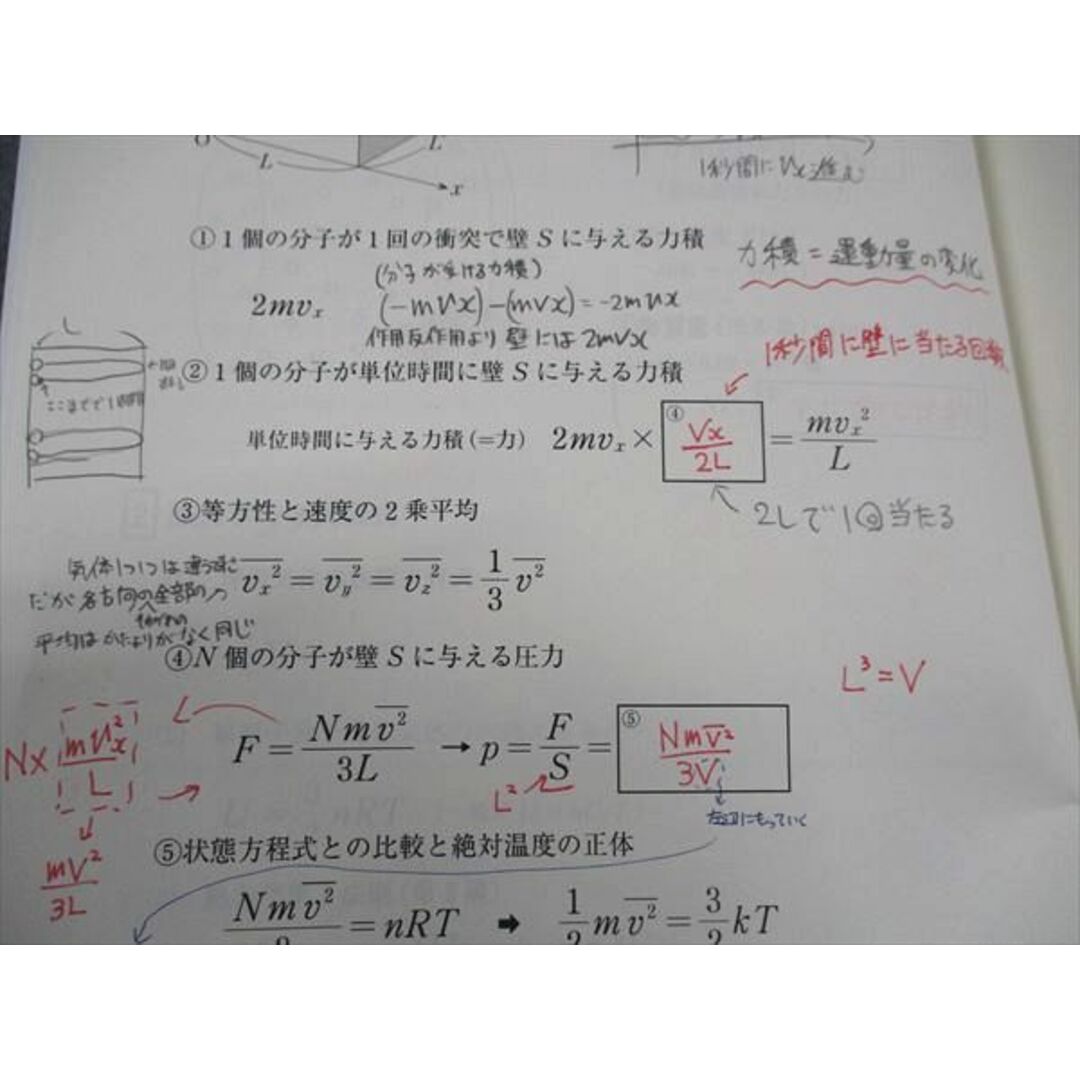 O
L
L
x
1秒間に Vx進む
①1個の分子が1回の衝突で壁Sに与える力積
力積＝運動量の変化
(分子が受ける力積)
2mvₓ (-mVx)-(mVx)=-2mVx
作用反作用より 壁には 2mVx
1秒間に壁に当たる回数
L
ここまでで1回
②1個の分子が単位時間に壁Sに与える力積
単位時間に与える力積(=力) 2mvₓ× ④ Vx/2L = mvₓ²/L
2Lで1回当たる
③等方性と速度の2乗平均
気体1つ1つは違う
だが各方向の全部の
それぞれの
平均はかたよりがなく同じ
$\overline{v_x^2}=\overline{v_y^2}=\overline{v_z^2}=\frac{1}{3}\overline{v^2}$
④N個の分子が壁Sに与える圧力
L³=V
N× mVx²/L
mV²/3L
$F=\frac{Nm\overline{v^2}}{3L}→p=\frac{F}{S}=$ ⑤ $\frac{Nm\overline{v^2}}{3V}$
L²
左辺にもっていく
⑤状態方程式との比較と絶対温度の正体
$\frac{Nm\overline{v^2}}{3}=nRT$ ➡ $\frac{1}{2}m\overline{v^2}=\frac{3}{2}kT$